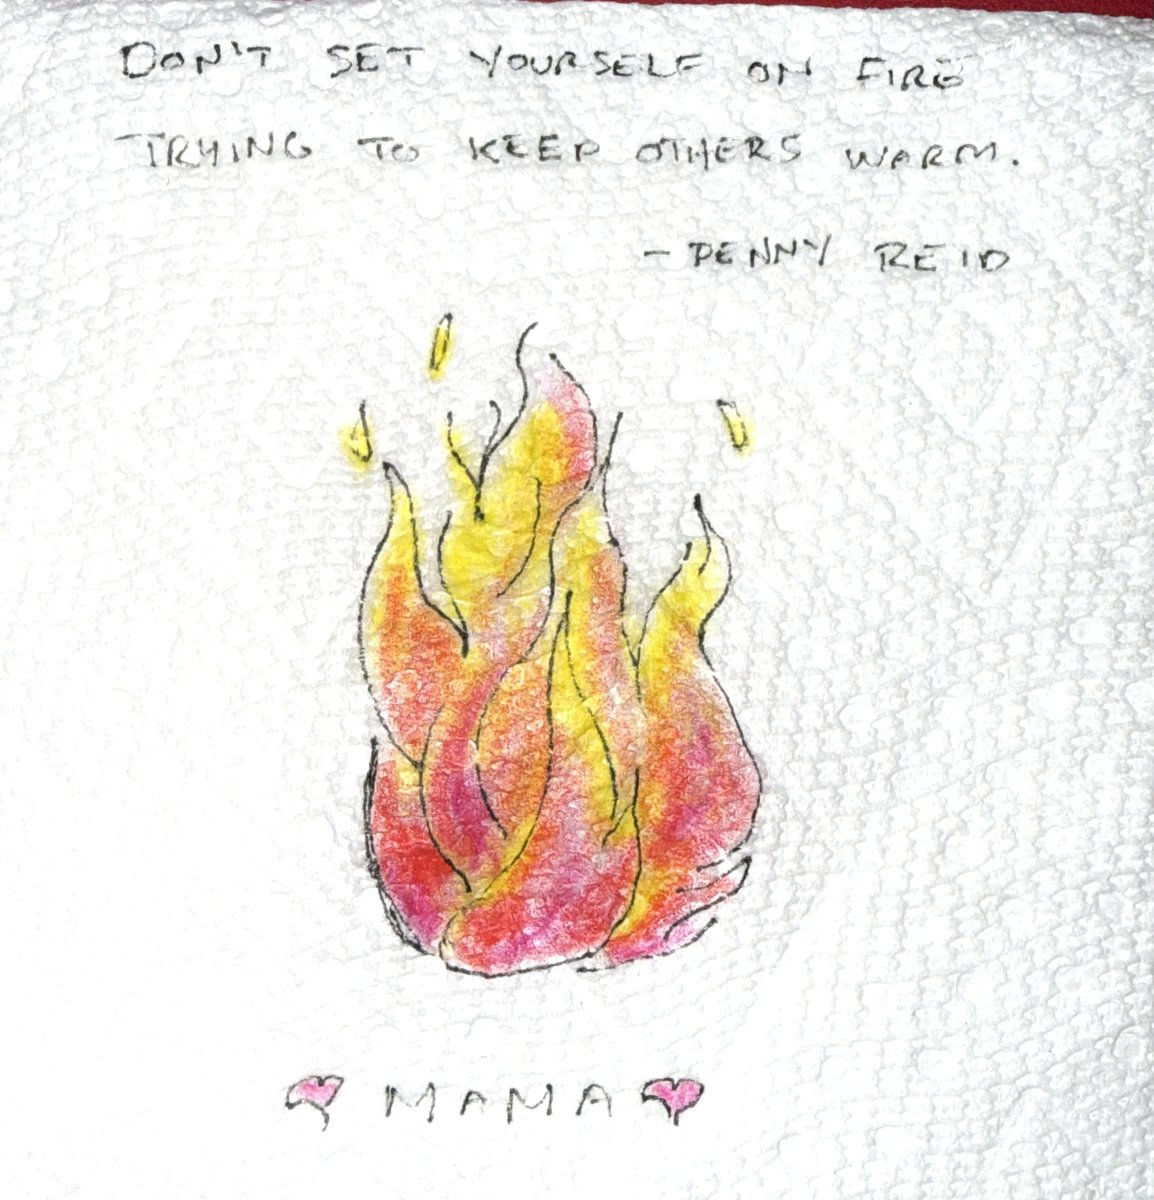 DON'T SET YOURSELF ON FIRE
TRYING TO KEEP OTHERS WARM.
- PENNY REID
MAMA